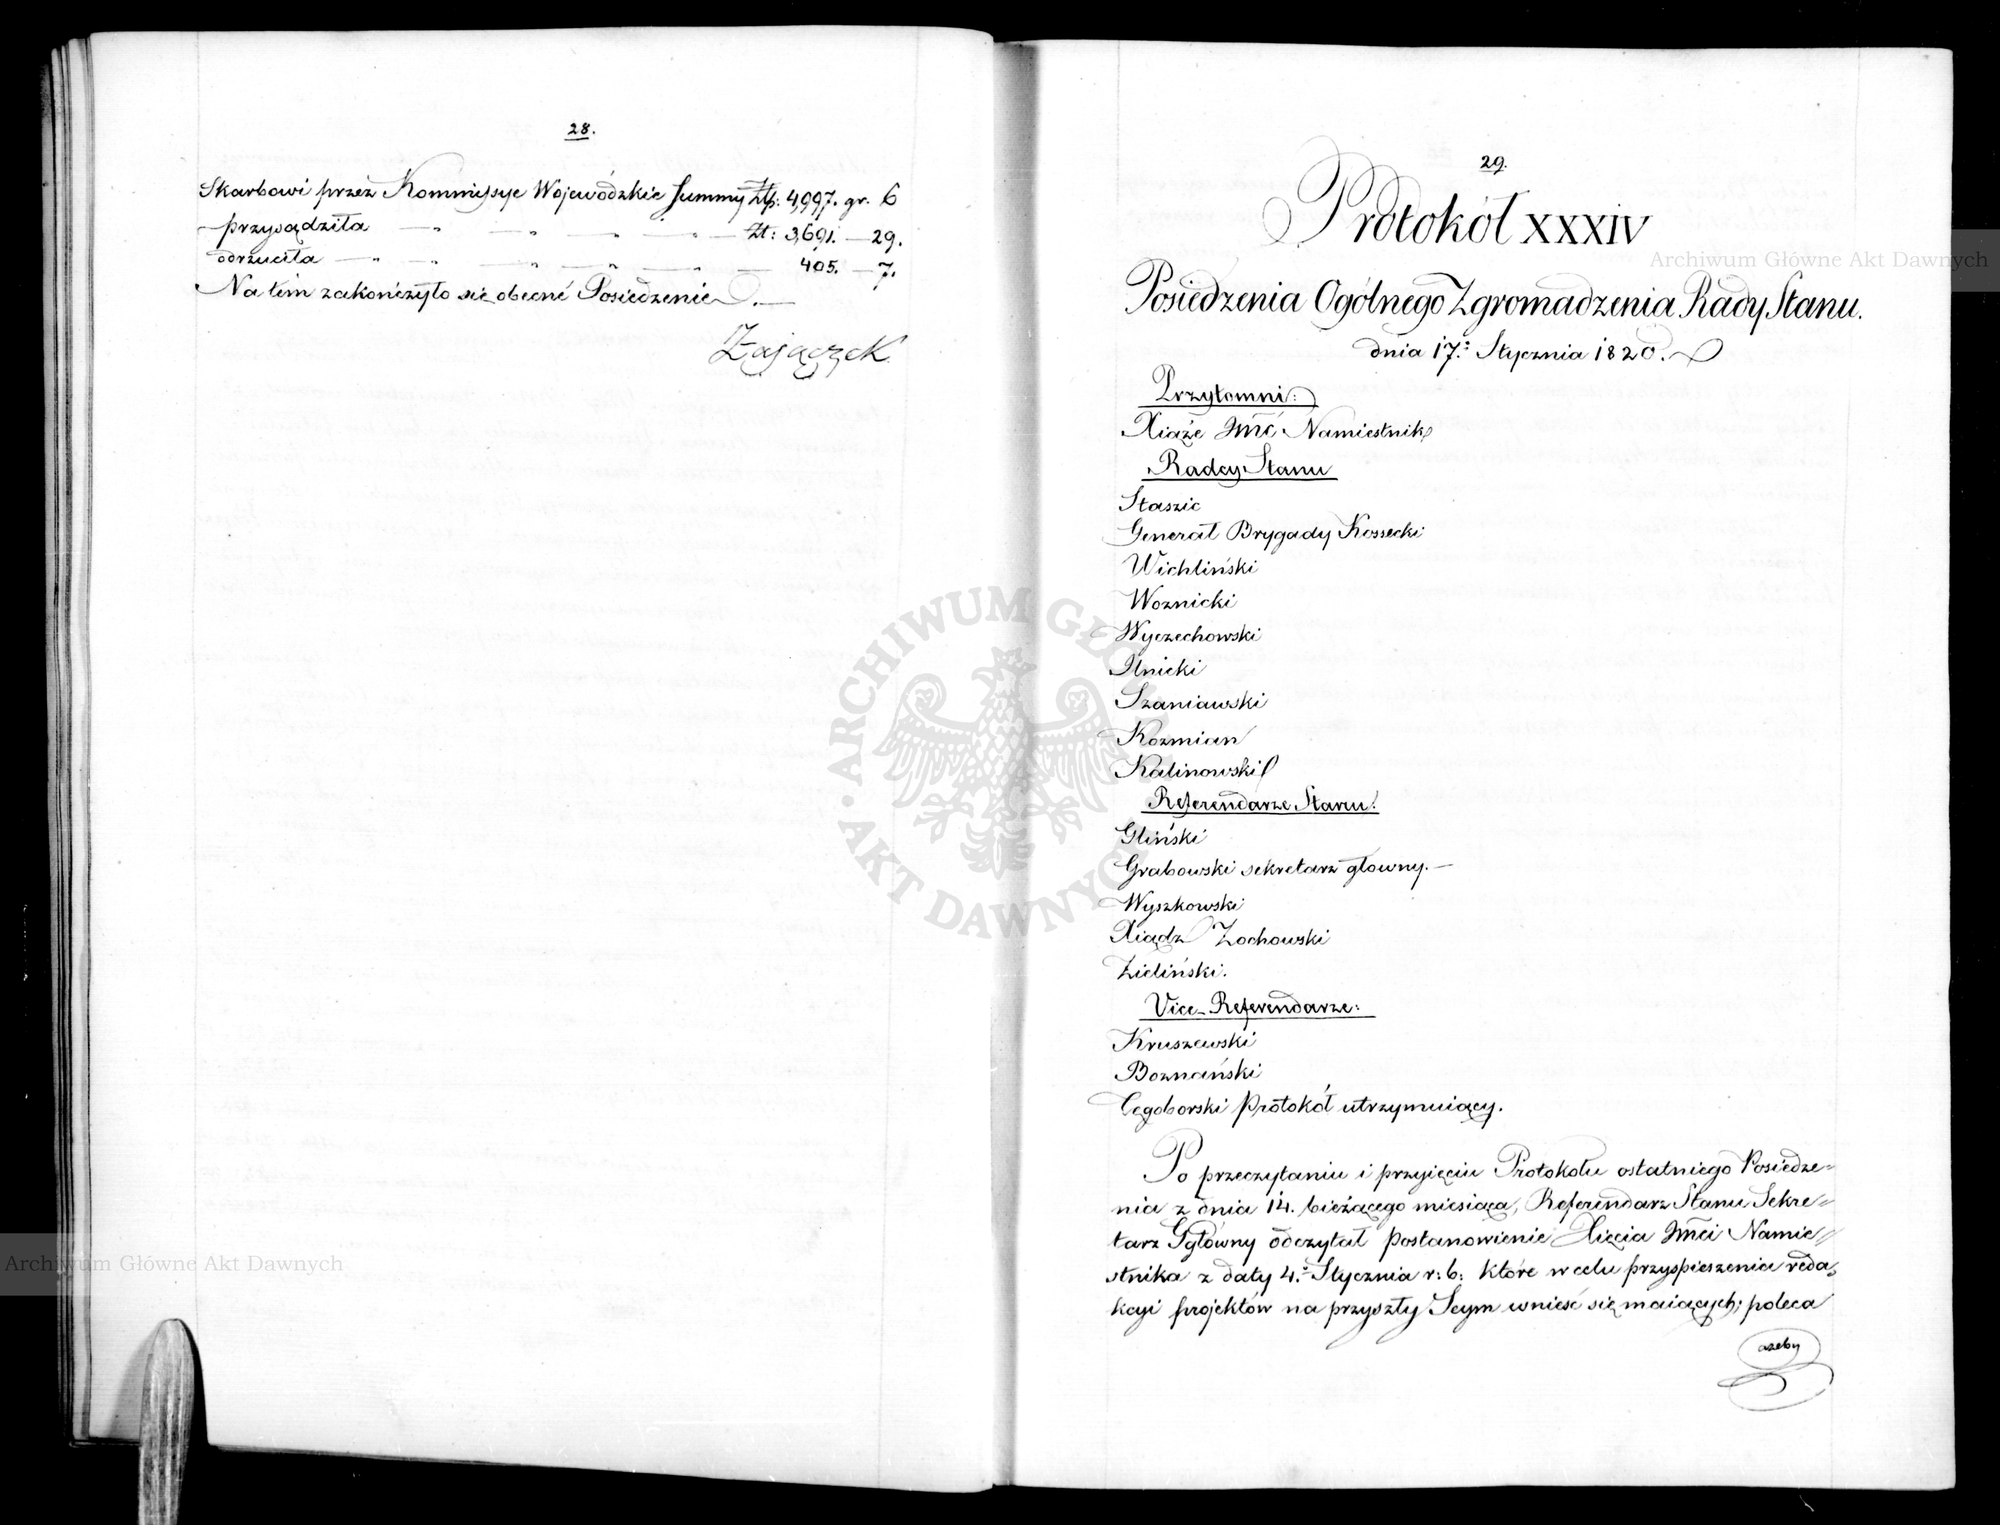 28.
Skarbowi przez Kommissye Wojewódzkie Summy Złp: 4,997. gr. 6
przysądziła — „ — „ — „ — „ — Zł: 3,691. — 29.
odrzuciła — „ — „ — „ — „ — „ — 405. — 7.
Na tém zakończyło się obecné Posiedzenie. —
Zajączek
29.
Protokół XXXIV
Posiedzenia Ogólnego Zgromadzenia Rady Stanu.
dnia 17.° Stycznia 1820.
Przytomni:
Xiąże Jmć Namiestnik
Radcy Stanu
Staszic
Generał Brygady Kossecki
Wichliński
Woznicki
Wyczechowski
Ilnicki
Szaniawski
Kozmian
Kalinowski
Referendarze Stanu:
Gliński
Grabowski sekretarz głowny. —
Wyszkowski
Xiądz Zochowski
Zieliński.
Vice-Referendarze:
Kruszewski
Boznański
Tęgoborski Protokół utrzymuiący.
Po przeczytaniu i przyięciu Protokołu ostatniego Posiedze=
nia z dnia 14. bieżącego miesiąca, Referendarz Stanu Sekre=
tarz Główny odczytał postanowienie Xięcia Jmci Namie=
stnika z daty 4.° Stycznia r: b: które w celu przyspieszenia reda=
kcyi projektów na przyszły Seym wnieść się maiących; poleca
ażeby
Archiwum Główne Akt Dawnych
Archiwum Główne Akt Dawnych
ARCHIWUM GŁÓWNE • AKT DAWNYCH •